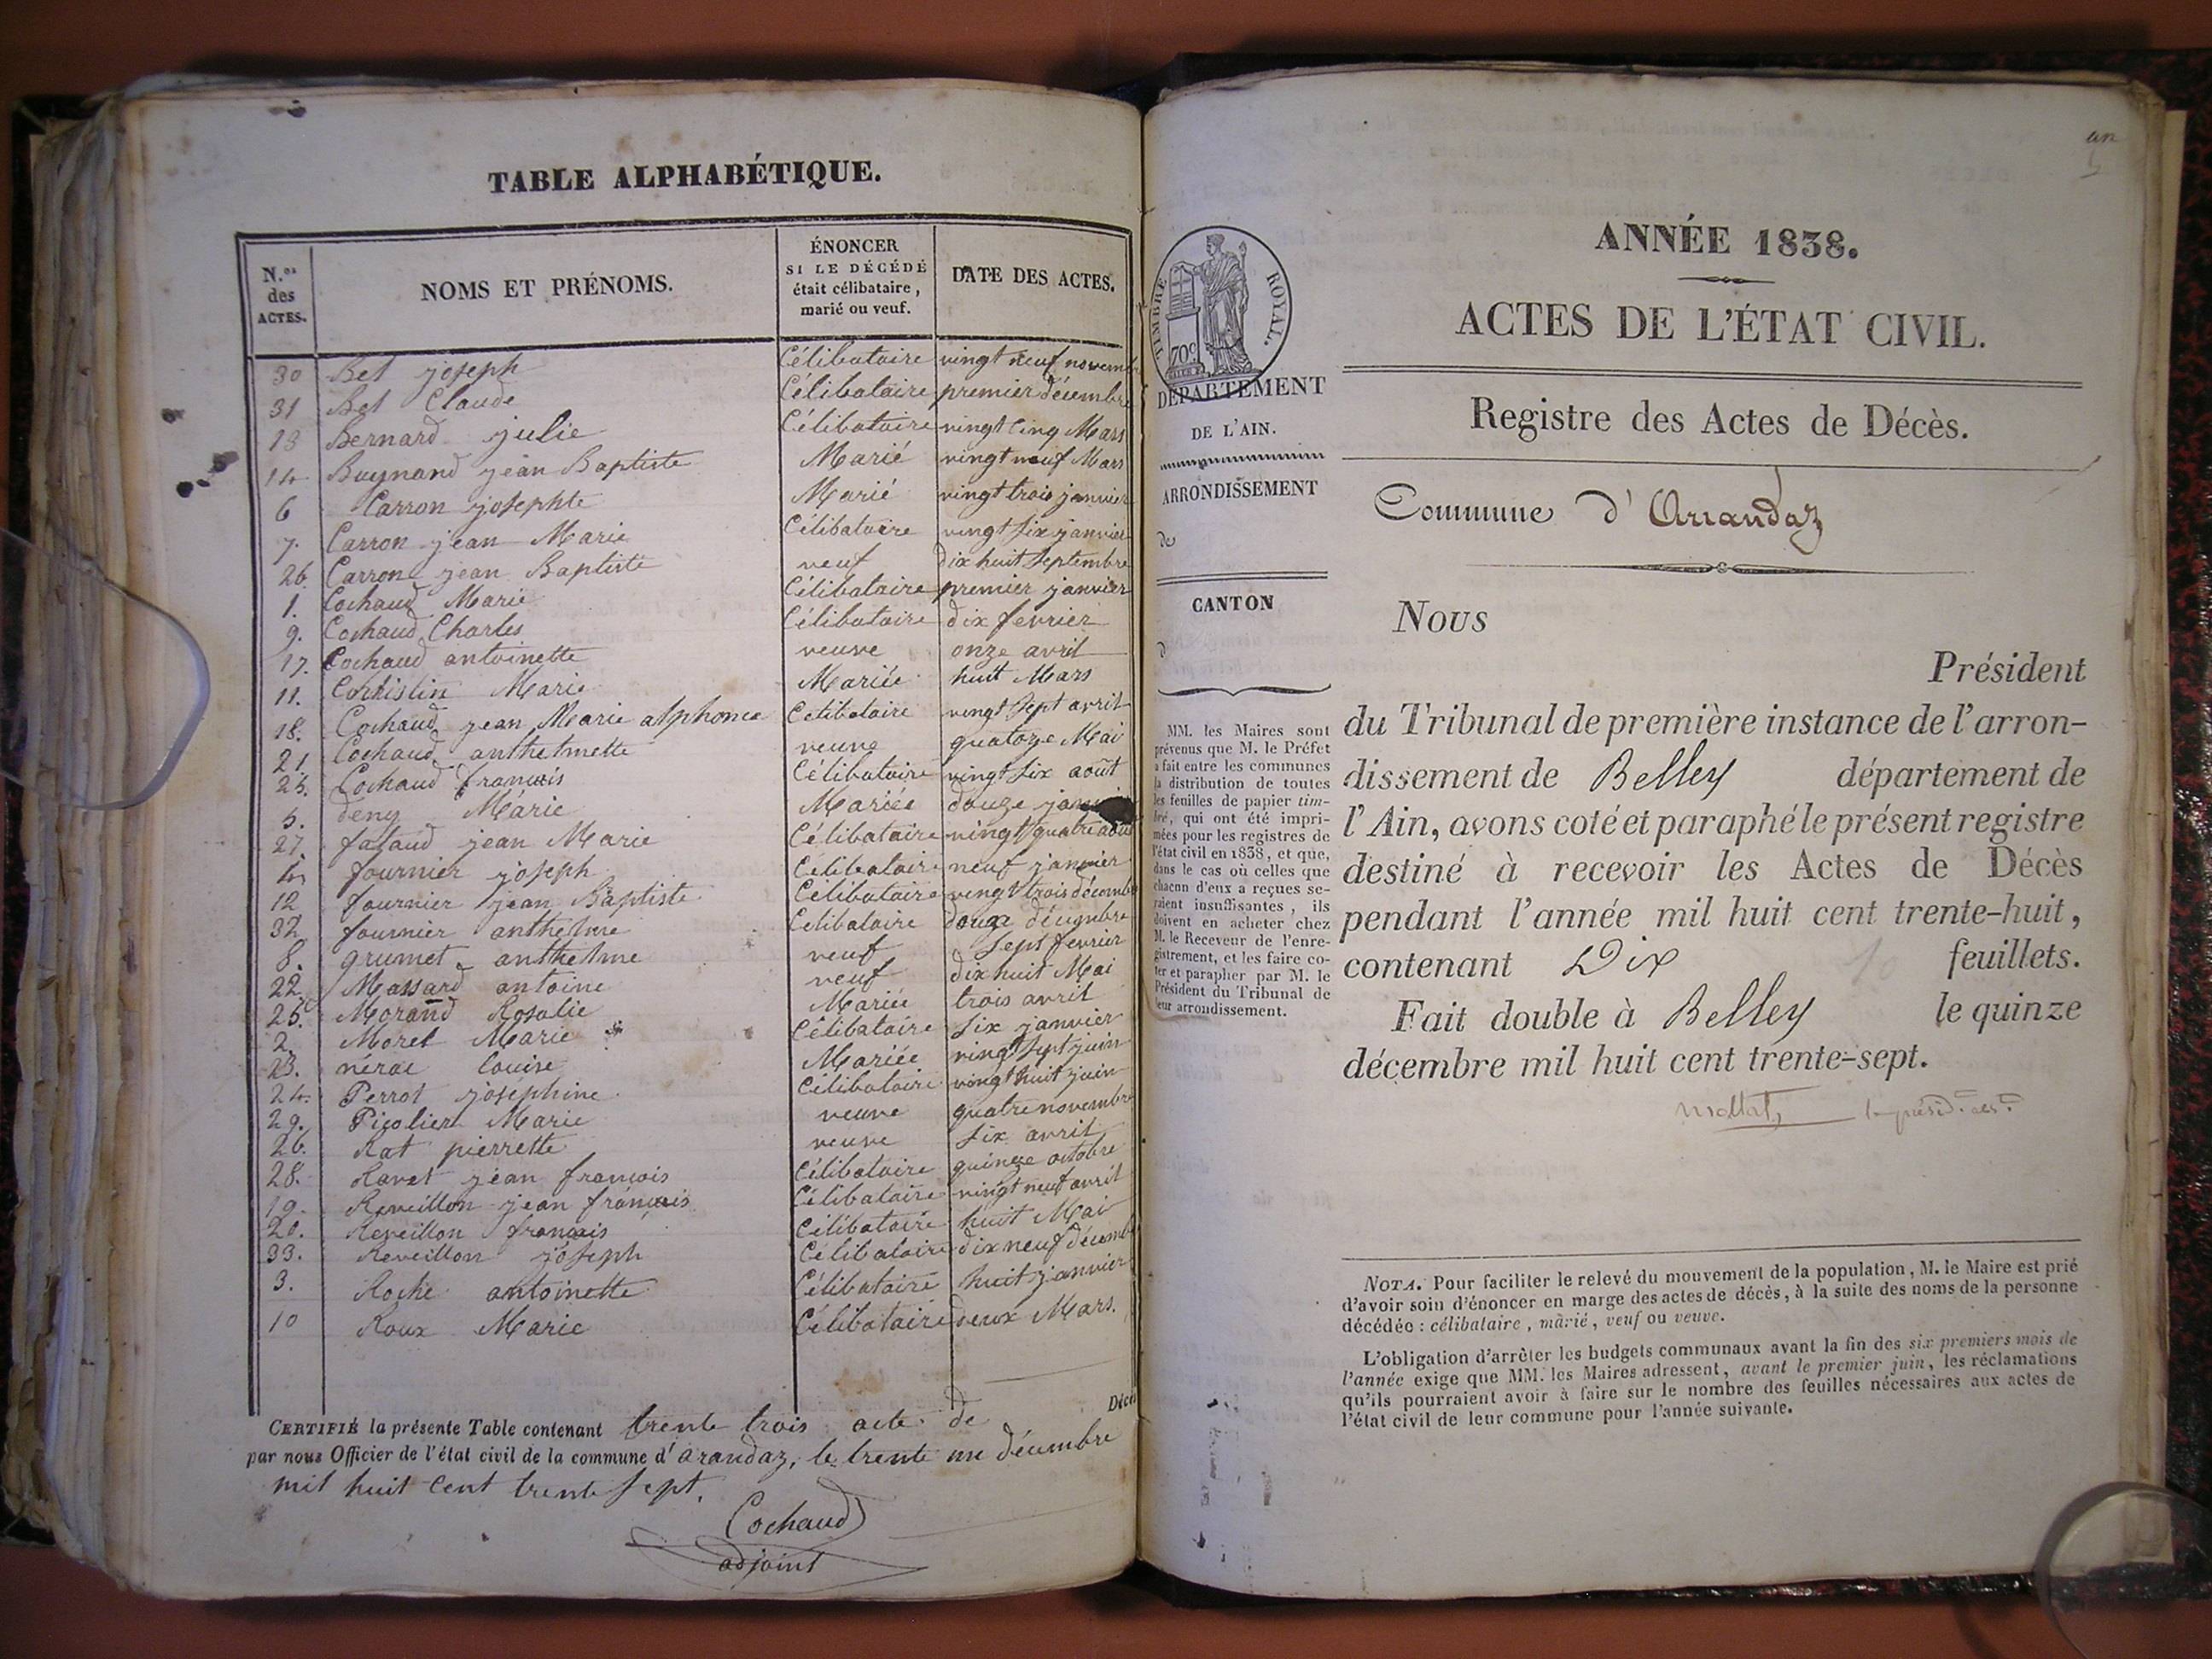 TABLE ALPHABÉTIQUE.
N.os des ACTES. NOMS ET PRÉNOMS. ÉNONCER SI LE DÉCÉDÉ était célibataire, marié ou veuf. DATE DES ACTES.
30 Bel joseph Célibataire vingt neuf novemb
31 Bel Claude Célibataire premier décembre
13 Bernard julie Célibataire vingt cinq Mars
14 Buynand jean Baptiste Marié vingt neuf Mars
6 Carron josephte Marié vingt trois janvier
7. Carron jean Marie Célibataire vingt six janvier
26. Carron jean Baptiste veuf dix huit septembre
1. Cochaud Marie Célibataire premier janvier
9. Cochaud Charles Célibataire dix fevrier
17. Cochaud antoinette veuve onze avril
11. Marie Mariée huit Mars
18. Cochaud jean Marie alphonce Célibataire vingt sept avril
21. Cochaud anthelmette veuve quatorze Mai
25. Cochaud francois Célibataire vingt six août
5. deny Marie Mariée douze
27. fataud jean Marie Célibataire vingt quatre
4. fournier joseph Célibataire neuf janvier
12 fournier jean Baptiste Célibataire vingt trois décemb
32 fournier anthelme Celibataire douze
8. grumet anthelme veuf sept fevrier
22. Massard antoine veuf dix huit Mai
Morand Rosalie Mariée trois avril
2. Morel Marie Célibataire six janvier
23. nérac louise Mariée vingt sept juin
24. Perrot joséphine Célibataire vingt huit juin
29. Picolier Marie veuve quatre novembre
26. Rat pierrette veuve six avril
28. Ravet jean francois Célibataire quinze octobre
19. Reveillon jean francois Célibataire vingt neuf avril
20. Reveillon francois Célibataire huit Mai
33. Reveillon joseph Célibataire dix neuf décemb
3. Roche antoinette Célibataire huit janvier
10 Roux Marie Célibataire deux Mars.
CERTIFIÉ la présente Table contenant trente trois acte de Décè
par nous Officier de l'état civil de la commune d'arandaz, le trente un décembre
mil huit cent trente sept.
Cochaud
adjoint
un
TIMBRE ROYAL.
70c
DÉPARTEMENT
DE L'AIN.
ARRONDISSEMENT
de
CANTON
d
MM. les Maires sont
prévenus que M. le Préfet
a fait entre les communes
la distribution de toutes
les feuilles de papier tim-
bré, qui ont été impri-
mées pour les registres de
l'état civil en 1838, et que,
dans le cas où celles que
chacun d'eux a reçues se-
raient insuffisantes, ils
doivent en acheter chez
M. le Receveur de l'enre-
gistrement, et les faire co-
ter et parapher par M. le
Président du Tribunal de
leur arrondissement.
ANNÉE 1838.
ACTES DE L'ÉTAT CIVIL.
Registre des Actes de Décès.
Commune d'Arrandaz
Nous
Président
du Tribunal de première instance de l'arron-
dissement de Belley département de
l'Ain, avons coté et paraphé le présent registre
destiné à recevoir les Actes de Décès
pendant l'année mil huit cent trente-huit,
contenant Dix 10 feuillets.
Fait double à Belley le quinze
décembre mil huit cent trente-sept.
NOTA. Pour faciliter le relevé du mouvement de la population, M. le Maire est prié
d'avoir soin d'énoncer en marge des actes de décès, à la suite des noms de la personne
décédée : célibataire, marié, veuf ou veuve.
L'obligation d'arrêter les budgets communaux avant la fin des six premiers mois de
l'année exige que MM. les Maires adressent, avant le premier juin, les réclamations
qu'ils pourraient avoir à faire sur le nombre des feuilles nécessaires aux actes de
l'état civil de leur commune pour l'année suivante.